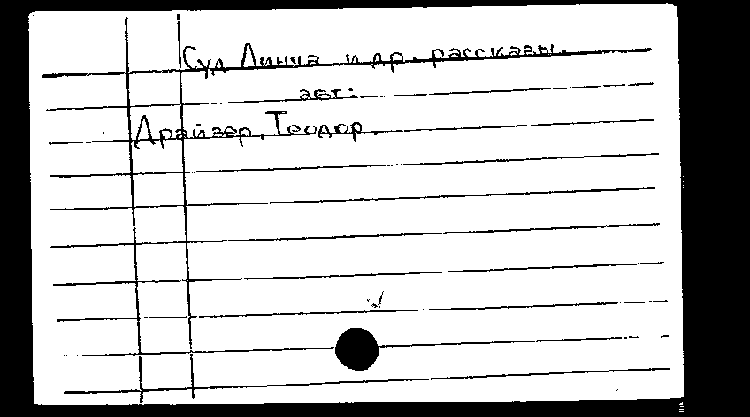 Суд Линча и др. рассказы.
авт:
Драйзер, Теодор.